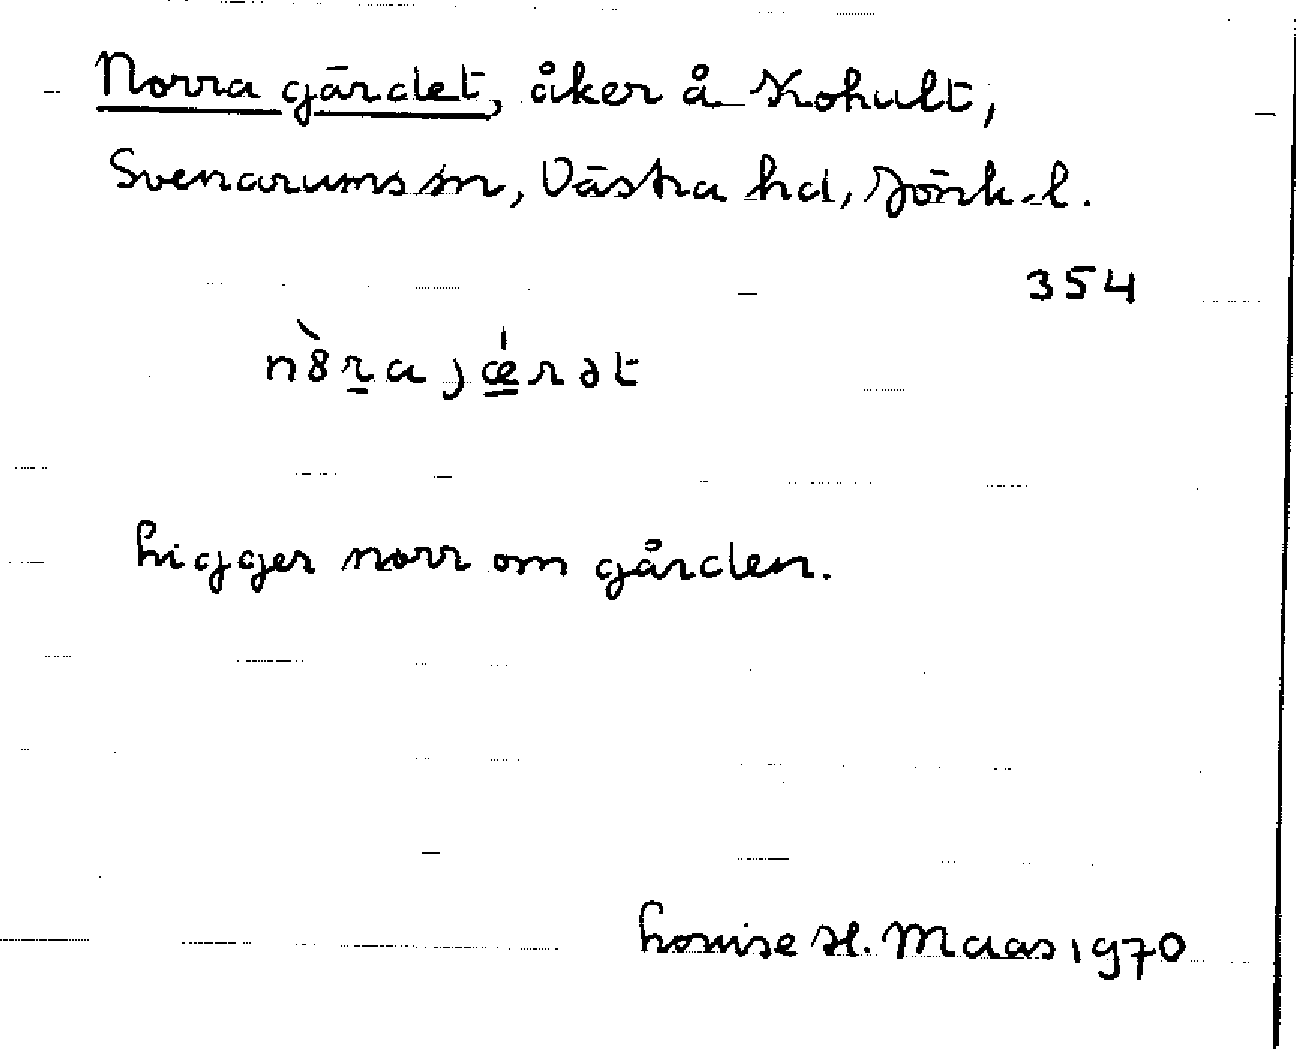 Norra gärdet, åker å Kohult,
Svenarums sn, Västra hd, Jönk. l.
354
nò8ra jǽrət
Ligger norr om gården.
Louise H. Maas 1970